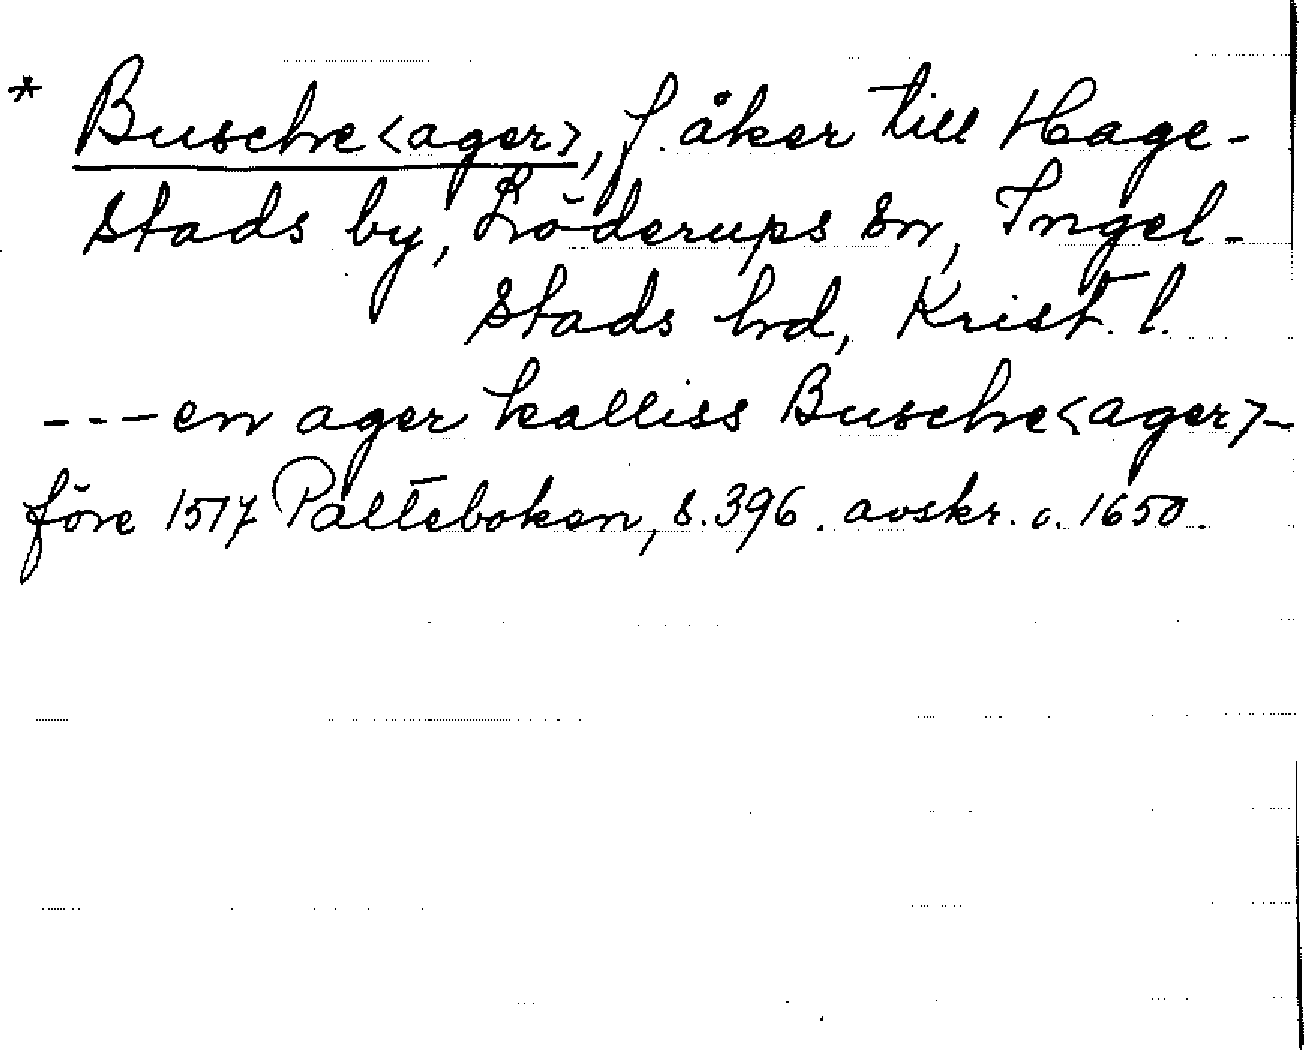 * Busche<ager>, f. åker till Hage-
stads by, Löderups sn, Ingel-
stads hd, Krist. l.
---en ager kalliss Busche<ager>-
före 1517 Palteboken, s. 396. avskr. c. 1650.